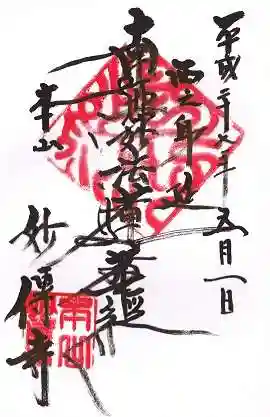 平成二十九年五月一日
西之身延
南無妙法蓮華経
本山
妙傳寺